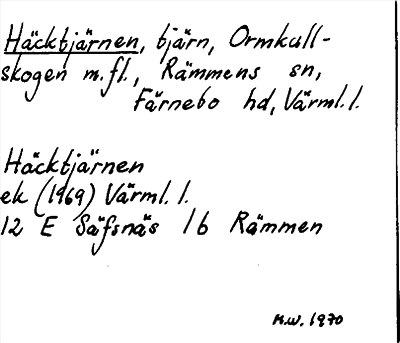 Häcktjärnen, tjärn, Ormkull-
skogen m.fl., Rämmens sn,
Färnebo hd, Värml.l.
Häcktjärnen
ek (1969) Värml. l.
12 E Säfsnäs 1b Rämmen
K.W. 1970